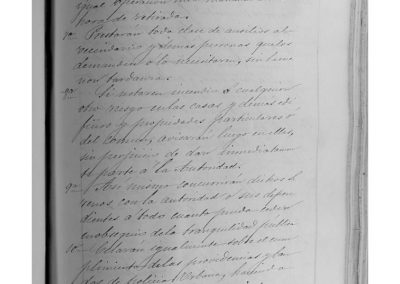 igual operacion
hora de retirada.
7ª Prestarán toda clase de ausilios al
vecindario y demas personas que los
demanden o la necesitaren, sin limi
tardanza.
8ª Si notaren incendio o cualquiera
otro riesgo en las casas y demas edi
ficios y propiedades particulares o
del comun, avisarán luego en ellas,
sin perjuicio de dar inmediatamen
te parte á la Autoridad.
9ª Asi mismo concurrirán dichos
con la autoridad o sus depen
dientes a todo cuanto pueda
en obsequio de la tranquilidad publica
10ª Celarán igualmente sobre el cum
plimiento de las providencias y ban
dos de policia Urbana,